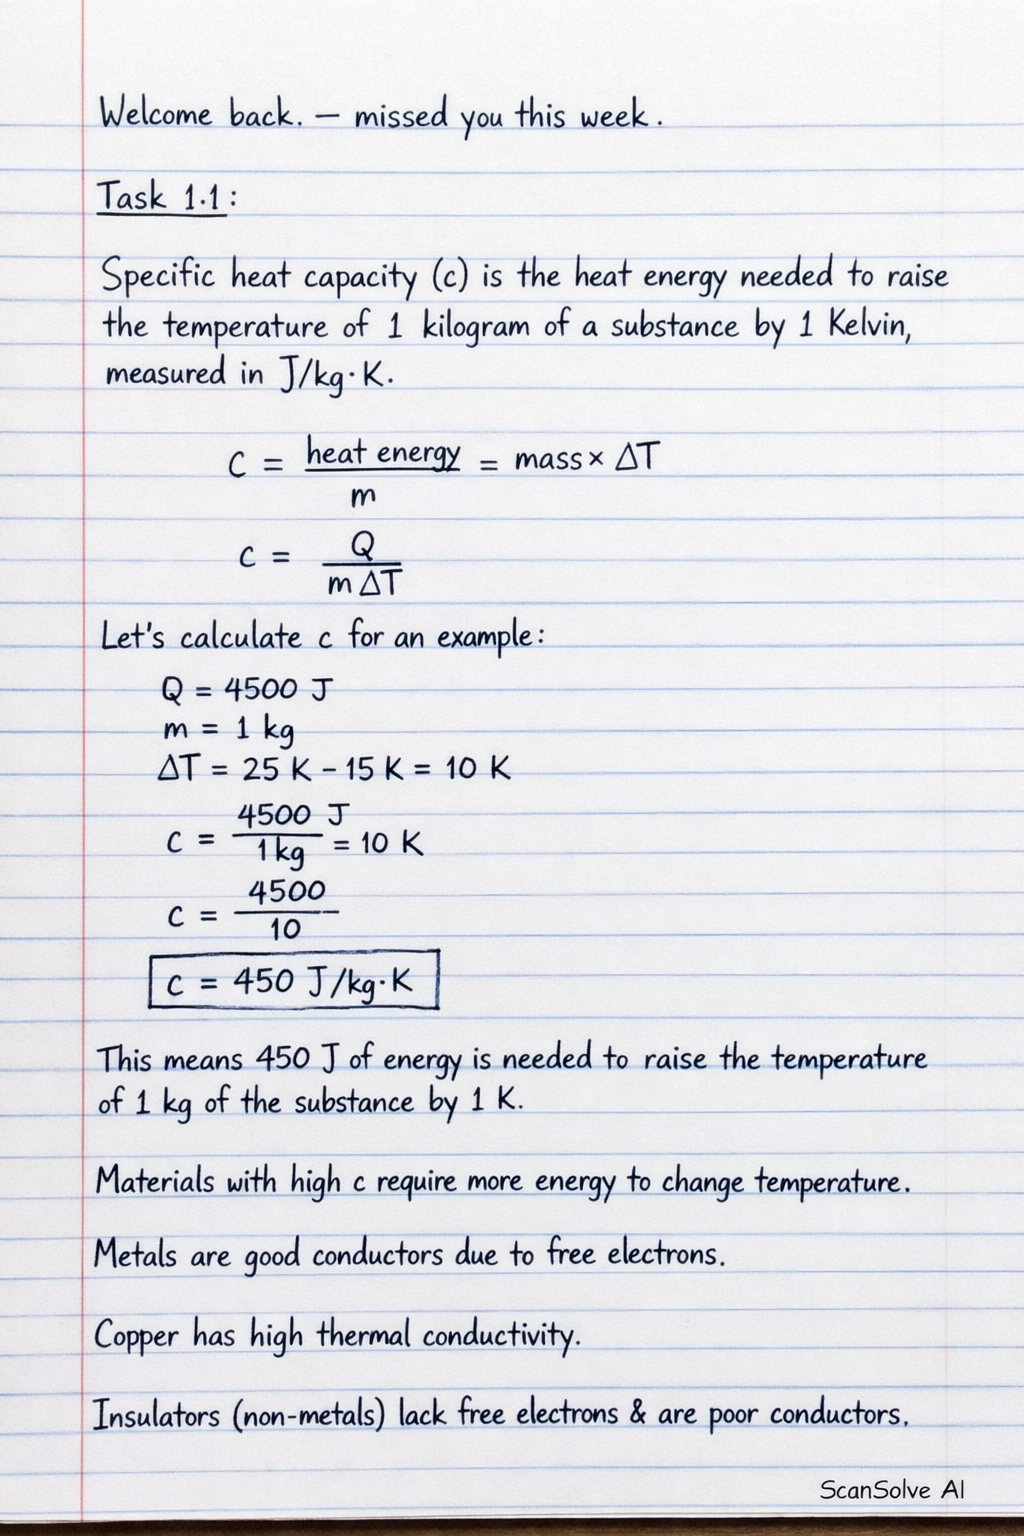 Welcome back. — missed you this week.
Task 1.1:
Specific heat capacity (c) is the heat energy needed to raise
the temperature of 1 kilogram of a substance by 1 Kelvin,
measured in J/kg·K.
C = heat energy / m = mass × ΔT
C = Q / m ΔT
Let's calculate c for an example:
Q = 4500 J
m = 1 kg
ΔT = 25 K - 15 K = 10 K
C = 4500 J / 1 kg = 10 K
C = 4500 / 10
c = 450 J/kg·K
This means 450 J of energy is needed to raise the temperature
of 1 kg of the substance by 1 K.
Materials with high c require more energy to change temperature.
Metals are good conductors due to free electrons.
Copper has high thermal conductivity.
Insulators (non-metals) lack free electrons & are poor conductors.
ScanSolve AI